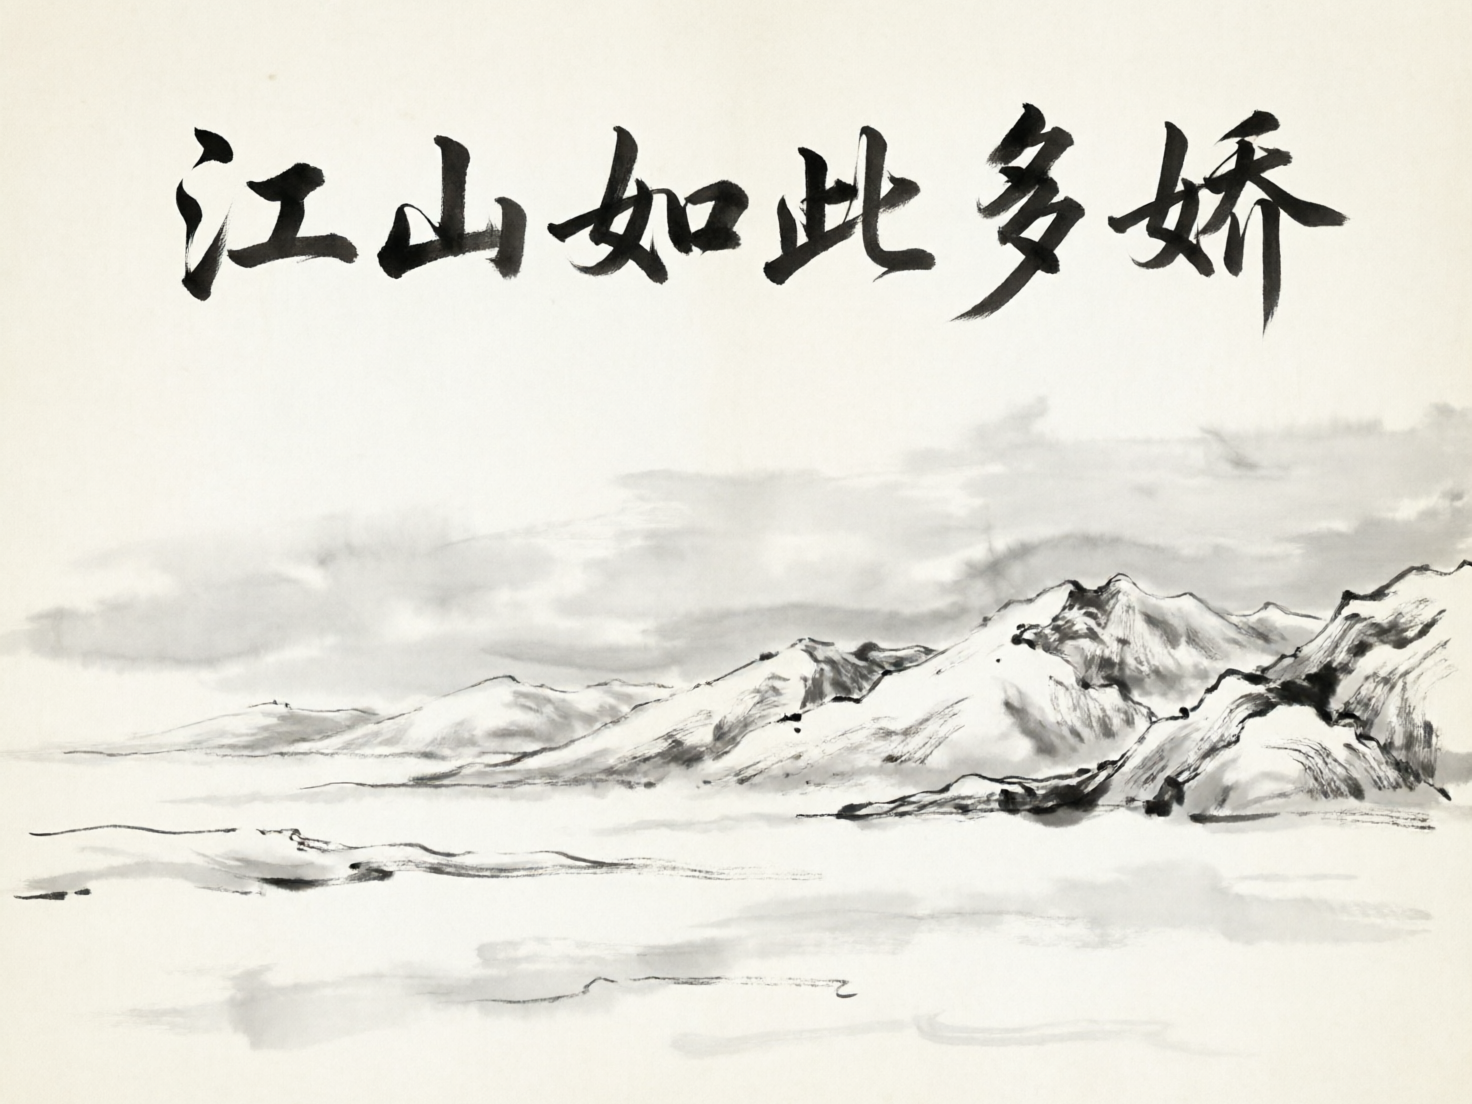 江山如此多娇